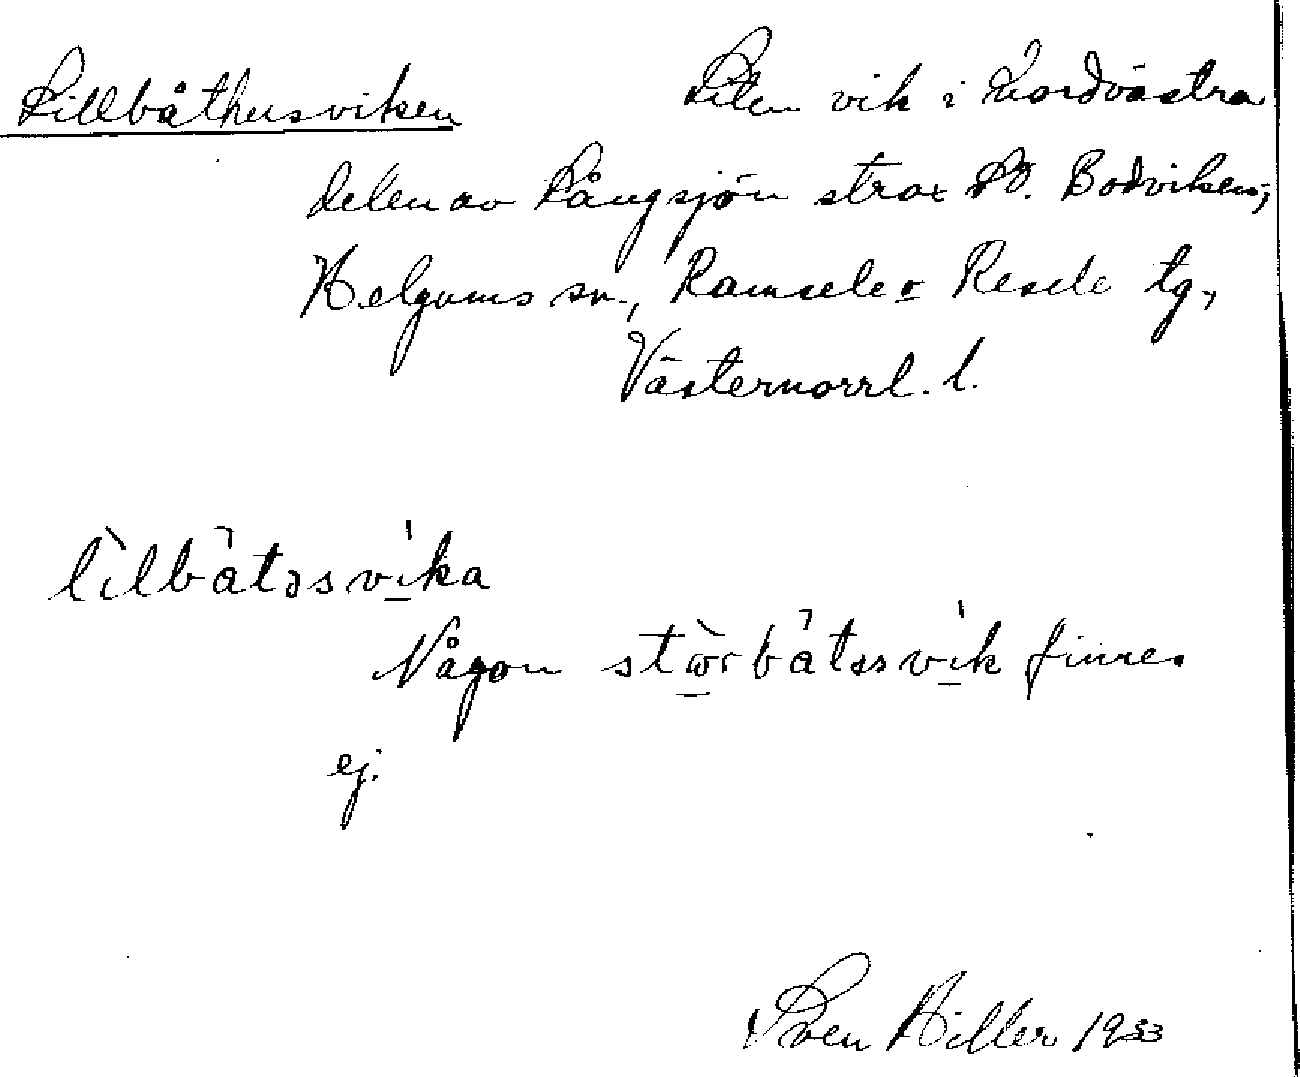 Lillbåthusviken Liten vik i Nordvästra
delen av Långsjön strax SO. Bodviken;
Helgums sn., Ramsele o Resele tg,
Västernorrl. l.
lìlbåtəsvika
Någon stòrbåtəsvik finnes
ej.
Sven Hiller 1933